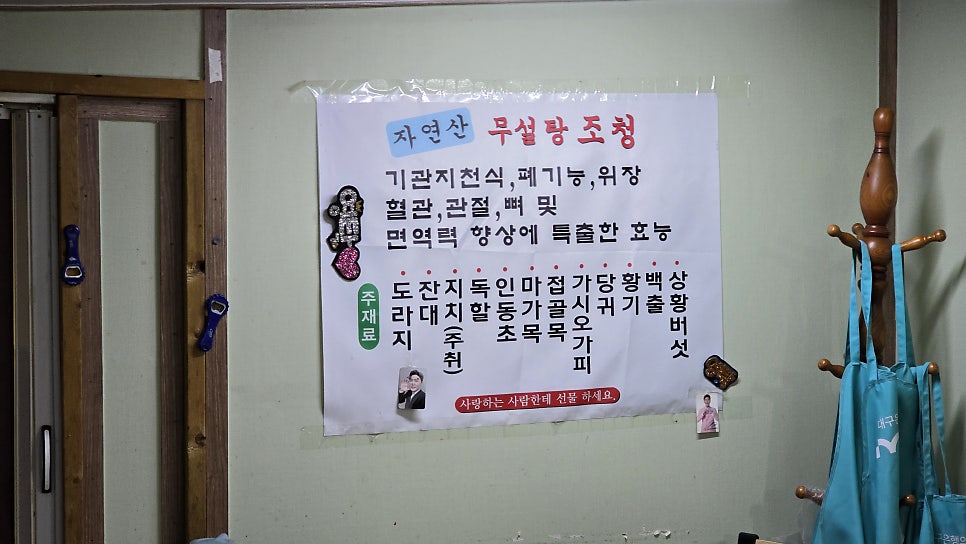 자연산 무설탕 조청
기관지천식,폐기능,위장
혈관,관절,뼈 및
면역력 향상에 특출한 효능
주재료
도라지
잔대
지치(주취)
독할
인동초
마가목
접골목
가시오가피
당귀
황기
백출
상황버섯
사랑하는 사람한테 선물 하세요.
대구